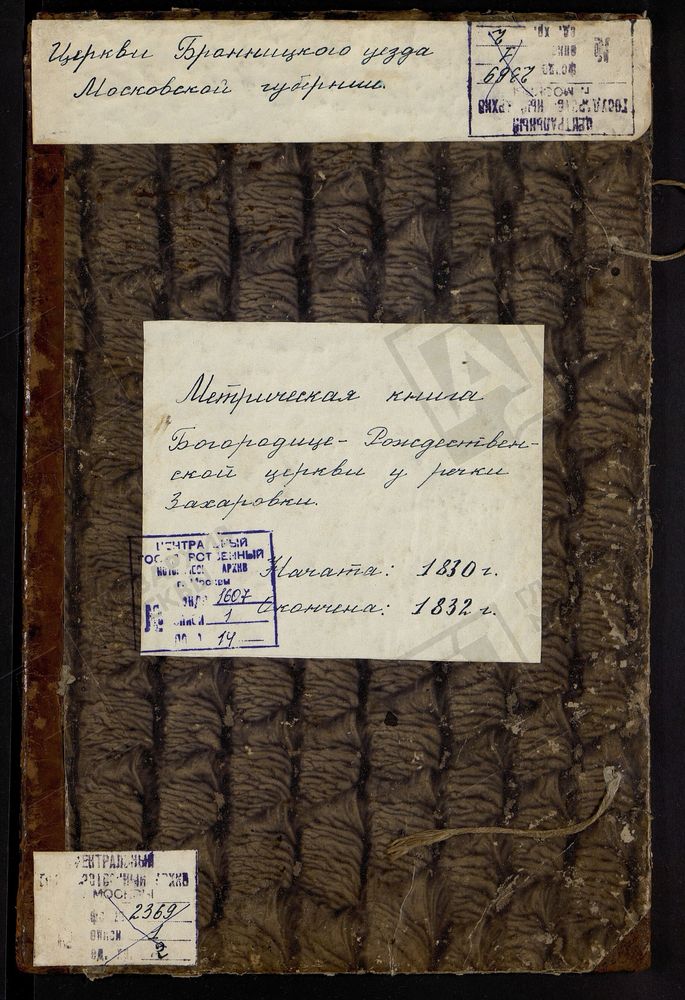 Церкви Бронницкого уезда
Московской губернии.
ЦЕНТРАЛЬНЫЙ
ГОСУДАРСТВЕННЫЙ АРХИВ
Г. МОСКВЫ
ФОНД 2369
ОПИСИ 1
№ ЕД. ХР. 2
Метрическая книга
Богородице-Рождествен-
ской церкви у речки
Захаровки.
Начата: 1830 г.
Окончена: 1832 г.
ЦЕНТРАЛЬНЫЙ
ГОСУДАРСТВЕННЫЙ
АРХИВ
г. Москвы
№ фонда 1607
описи 1
14
ЦЕНТРАЛЬНЫЙ
АРХИВ
МОСКВЫ
2369
ОПИСИ 1
ЕД. 2